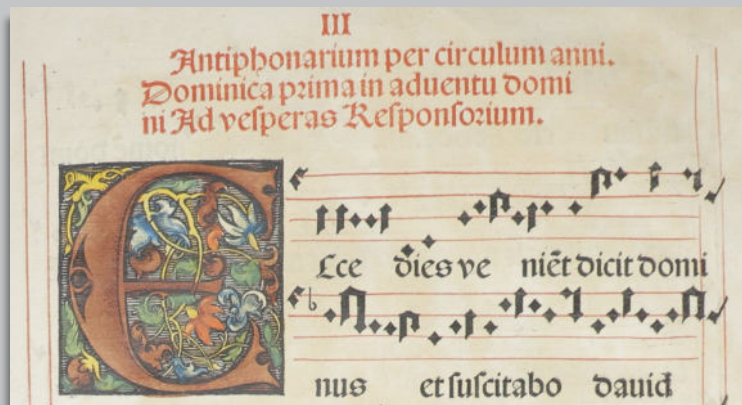 III
Antiphonarium per circulum anni.
Dominica prima in aduentu domi
ni Ad vesperas Responsorium.
E Ecce dies ve niẽt dicit domi
nus et suscitabo dauid